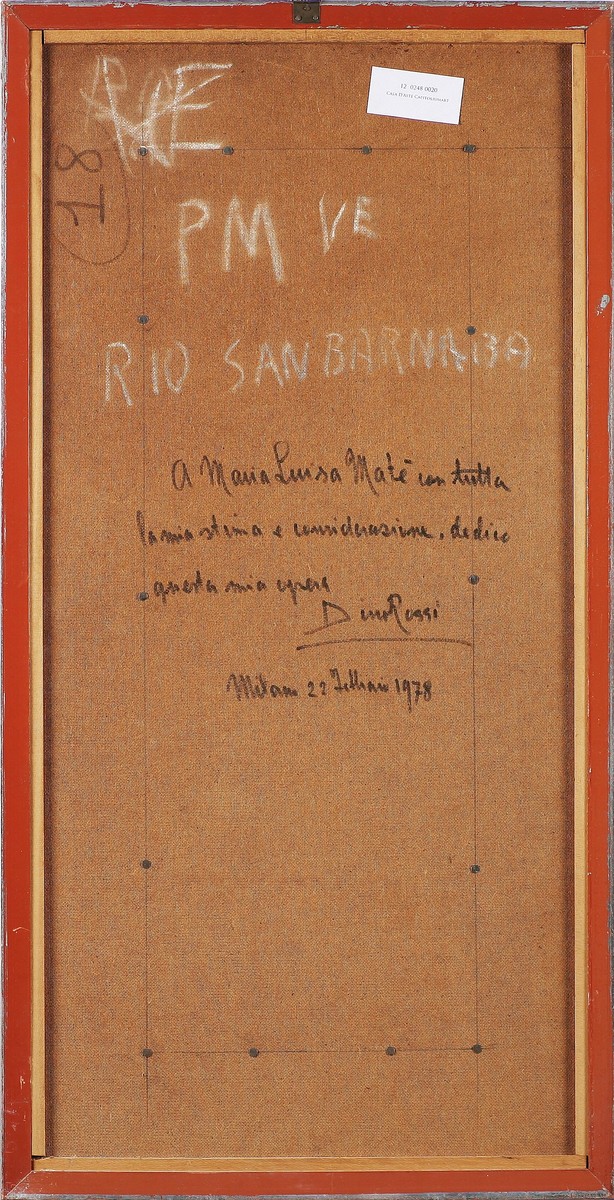 12 0248 0020
18
PM VE
RIO SAN BARNABA
A Maria Luisa Maté con tutta
la mia stima e considerazione, dedico
questa mia opera
Dino Rossi
Milano 22 Febbraio 1978